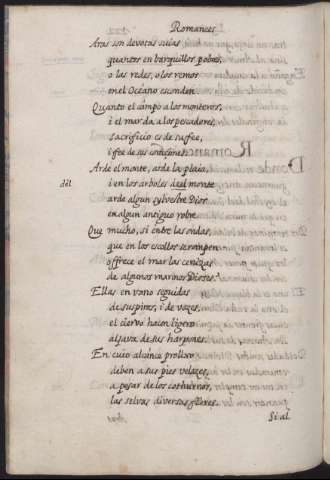 Romances
Aras son devotas suias
quantos en barquillos pobres,
o las redes, o los remos
en el Océano esconden.
Quanto el campo a los monteros,
i el mar da, a los pescadores,
sacrificio es de su fee,
i fee de sus corazones.
Arde el monte, arde la plaia,
dèl
i en los arboles del monte
arde algun sylvestre Dios
en algun antiguo robre.
Que mucho, si entre las ondas,
que en los escollos se rompen
offrece el mar las cenizas
de algunos marinos Dioses.
Ellas en vano seguidas
de suspiros, i de vozes,
el ciervo hacen ligero
aljava de sus harpones.
En cuio alcance prolixo
deben a sus pies velozes,
a pesar de los cothurnos,
las selvas diversas flores.
Si al